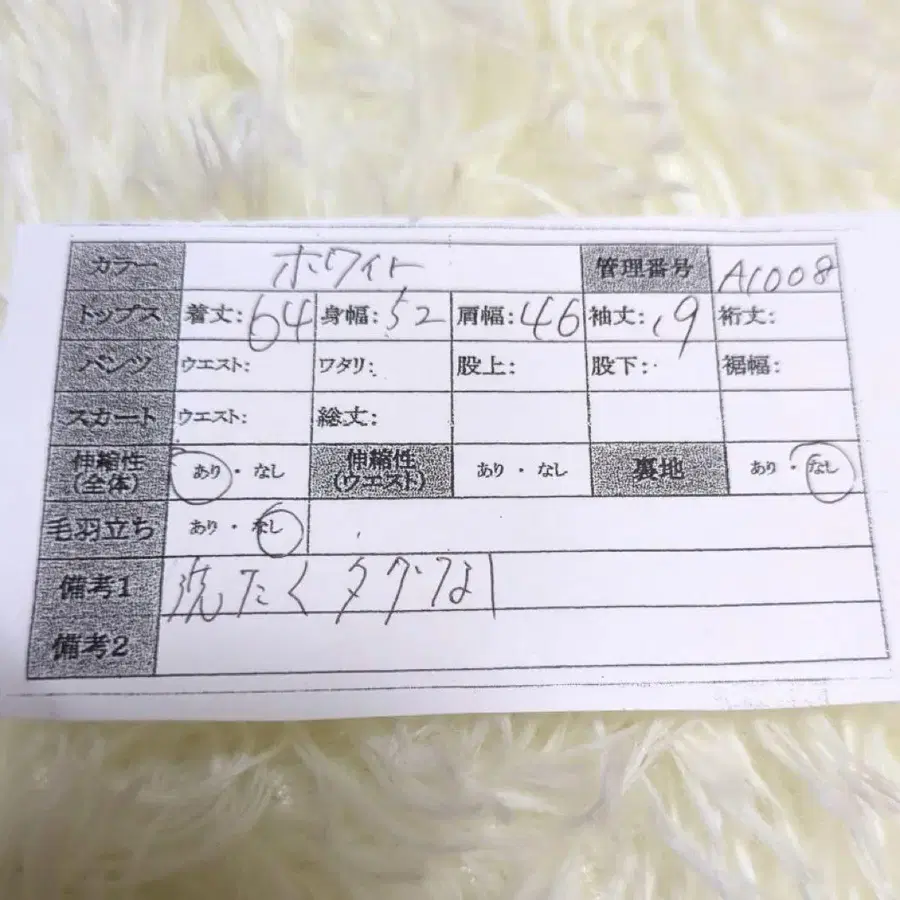 カラー ホワイト 管理番号 A1008
トップス 着丈: 64 身幅: 52 肩幅: 46 袖丈: 19 裄丈:
パンツ ウエスト: ワタリ: 股上: 股下: 裾幅:
スカート ウエスト: 総丈:
伸縮性(全体) あり・なし 伸縮性(ウエスト) あり・なし 裏地 あり・なし
毛羽立ち あり・なし
備考1 洗たくタグなし
備考2